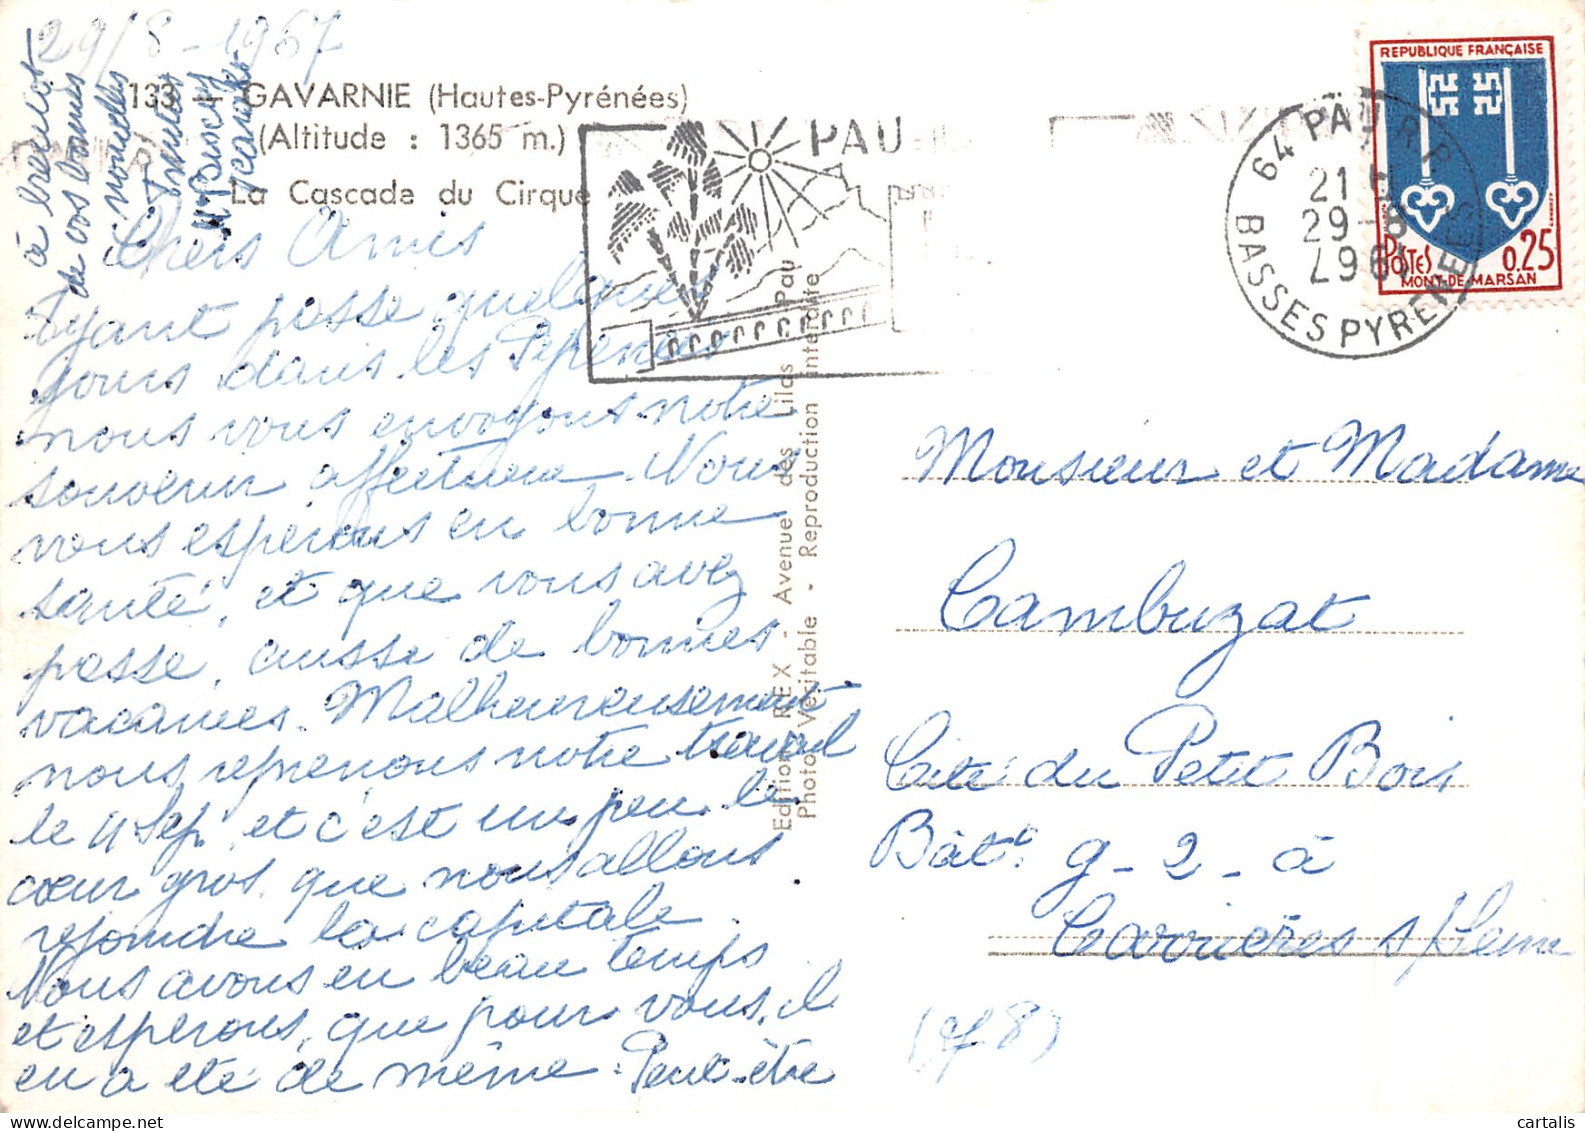 29/8-1967
133 — GAVARNIE (Hautes-Pyrénées)
(Altitude : 1365 m.)
La Cascade du Cirque
Chers Amis
Ayant passe quelques
jours dans les Pyrenées
nous vous envoyons notre
souvenir affectueux. Nous
vous esperons en bonne
santé, et que vous avez
passe, aussi de bonnes
vacances. Malheureusement
nous reprenons notre travail
le 4 Sep, et c'est un peu le
cœur gros, que nous allons
rejoindre la capitale.
Nous avons eu beau temps
et esperons, que pour vous, il
en a été de même. Peut-être
à bientot
de vos bonnes
nouvelles
Amities
Edition REX - Avenue des Lilas - Pau
Photo Véritable - Reproduction interdite
PAU
64 PAU R.P.
21 H
29-8
1967
BASSES PYRENEES
REPUBLIQUE FRANÇAISE
POSTES
0,25
MONT-DE-MARSAN
Monsieur et Madame
Cambuzat
Cité du Petit Bois
Bât: g-2-à
Carrières s/Seine
cartalis